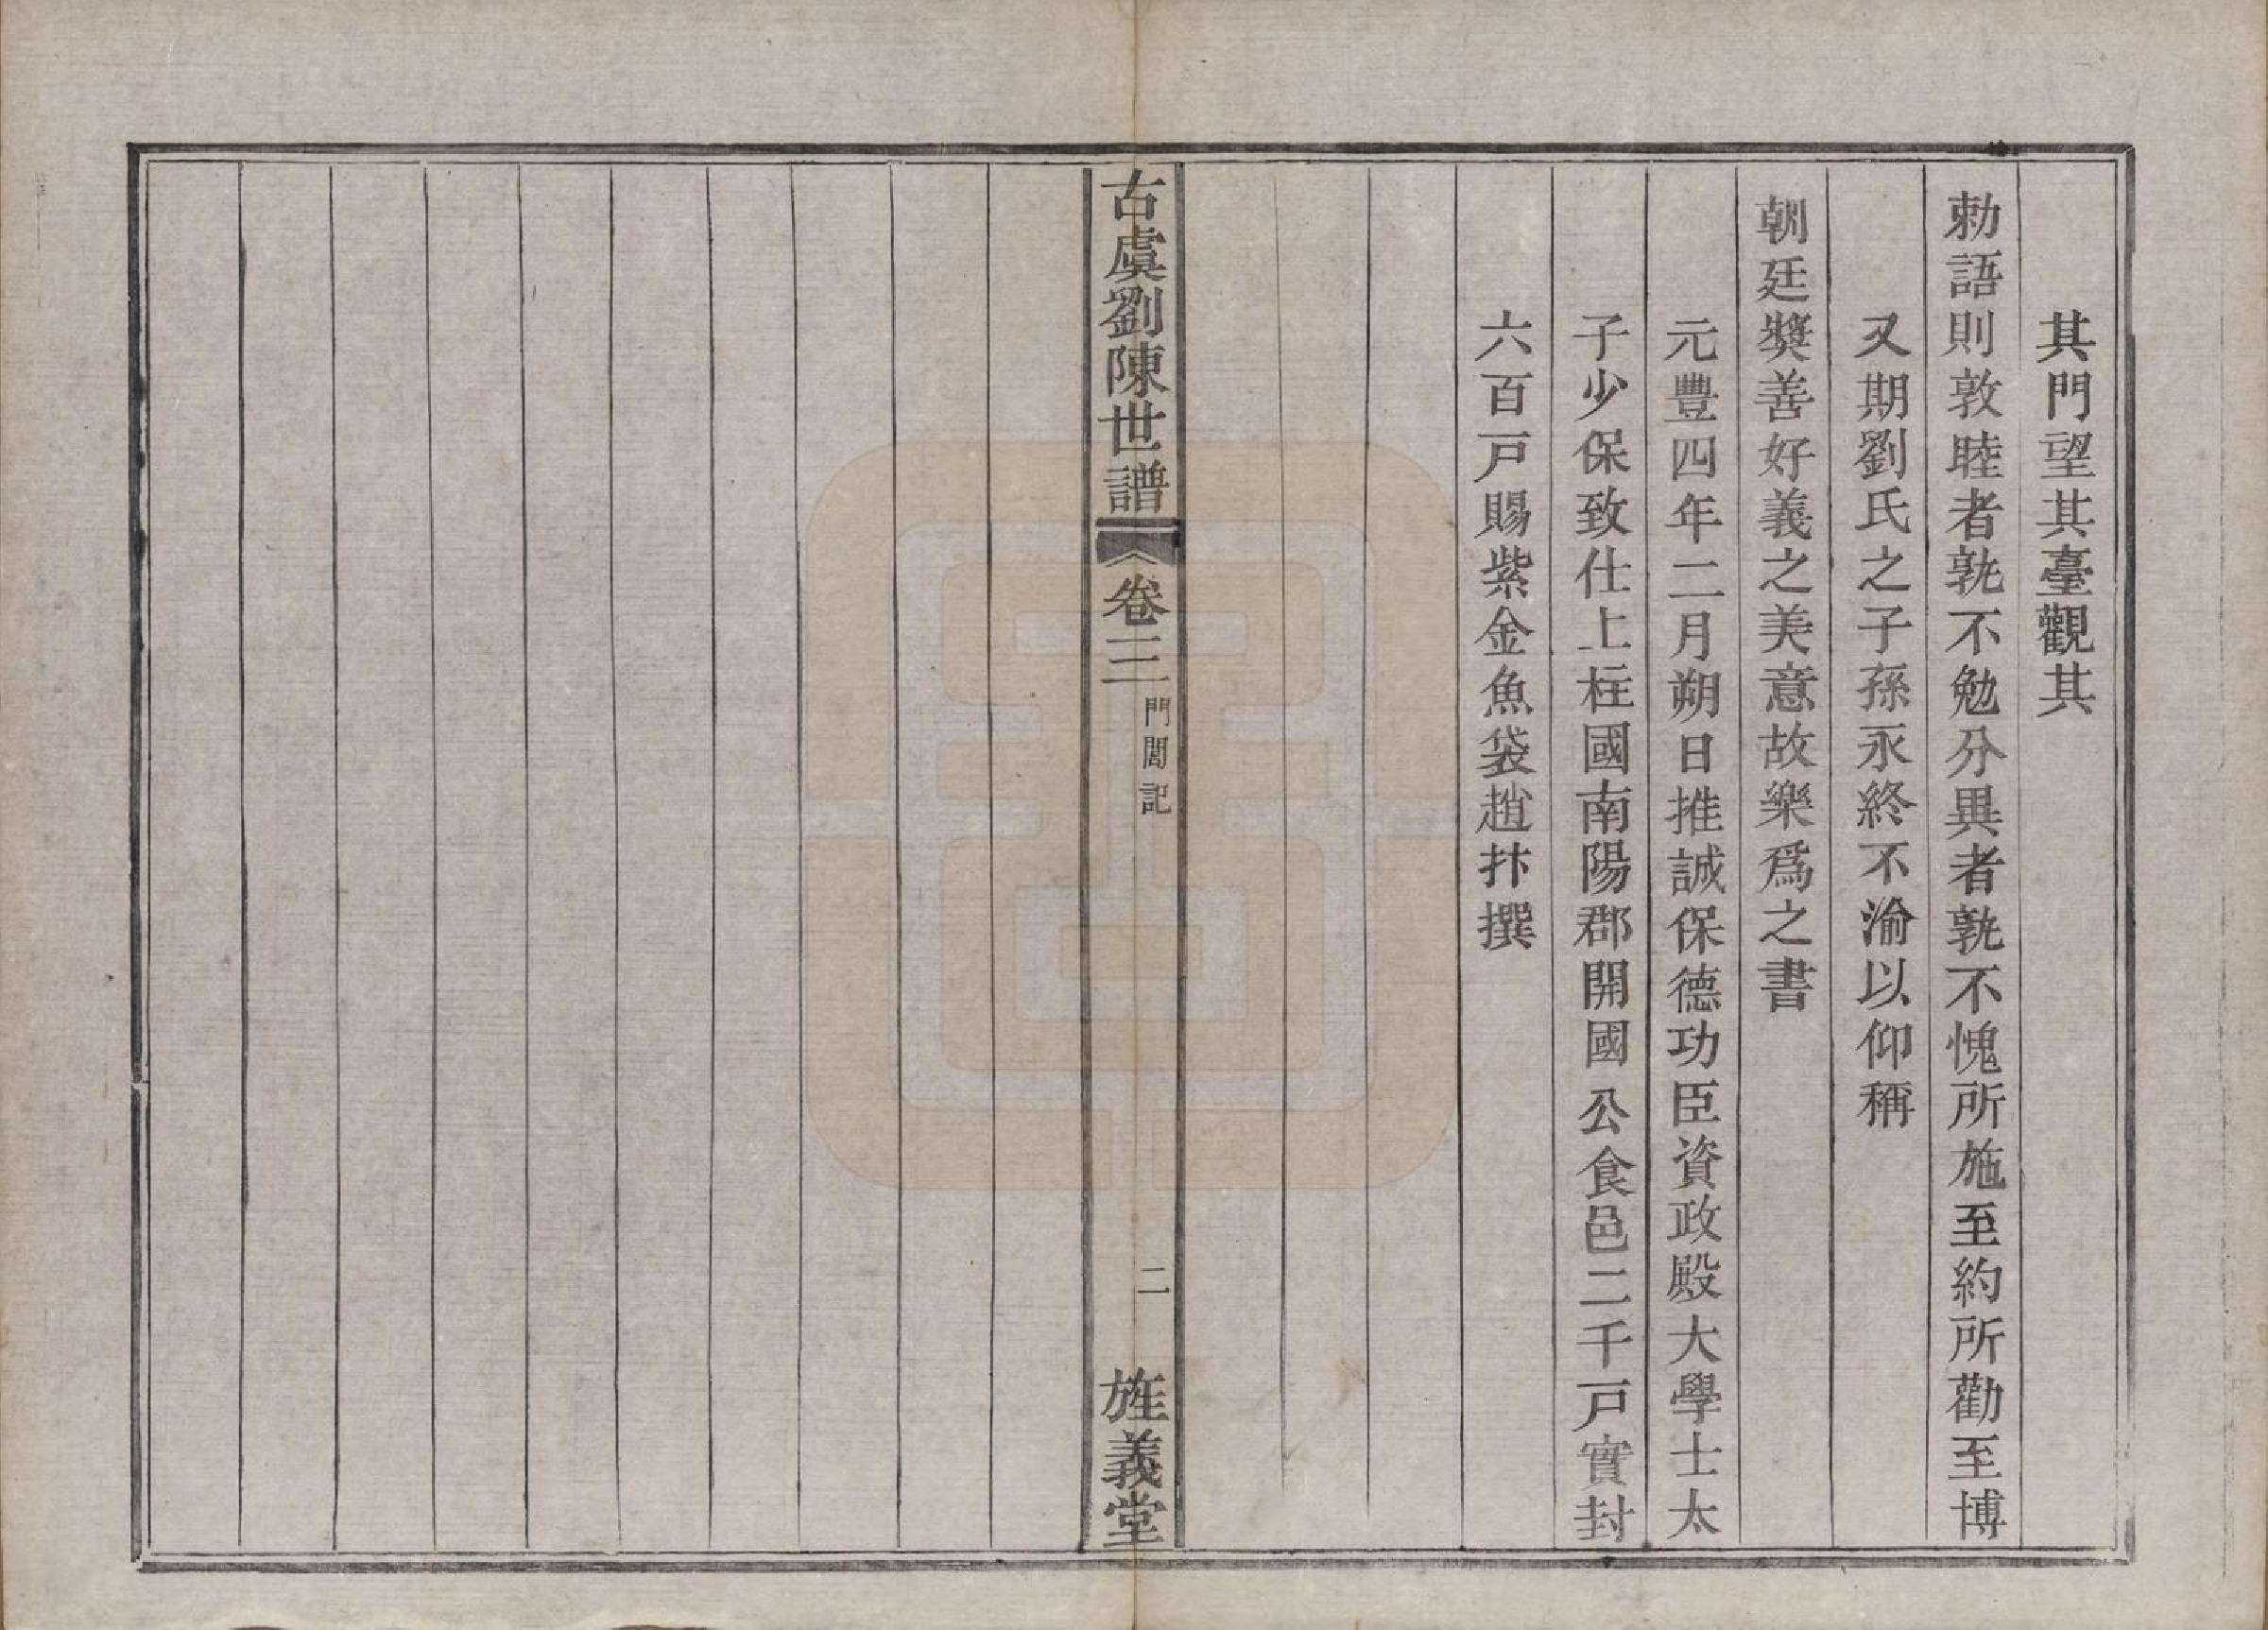 其門望其臺觀其
勅語則敦睦者孰不勉分異者孰不愧所施至約所勸至博
又期劉氏之子孫永終不渝以仰稱
朝廷奬善好義之美意故樂爲之書
元豐四年二月朔日推誠保德功臣資政殿大學士太
子少保致仕上柱國南陽郡開國公食邑二千戸實封
六百戸賜紫金魚袋趙抃撰
古虞劉陳世譜
卷三
門閭記
二
旌義堂